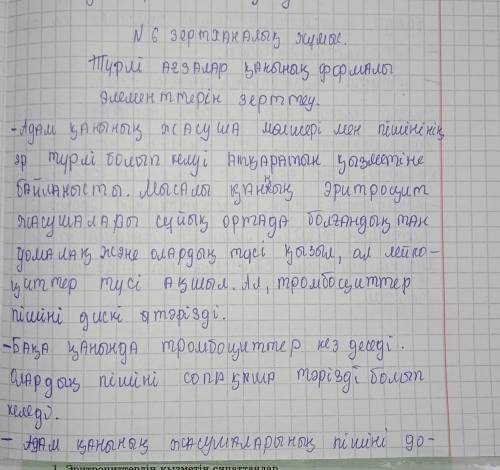 N 6 зертханалық жұмыс.
Түрлі ағзалар қанының формалы
элементтерін зерттеу.
-Адам қанының жасуша мөлшері мен пішінінің
әр түрлі болып келуі атқаратын қызметіне
байланысты. Мысалы қанның эритроцит
жасушалары сұйық ортада болғандықтан
домалақ және олардың түсі қызыл, ал лейко-
циттер түсі ақшыл. Ал, тромбоциттер
пішіні диск тәрізді.
-Бақа қанында тромбоциттер кездеседі.
Олардың пішіні сопақша тәрізді болып
келеді.
- Адам қанының жасушаларының пішіні до-
1. Эритроциттердің қызметін сипаттаңдар